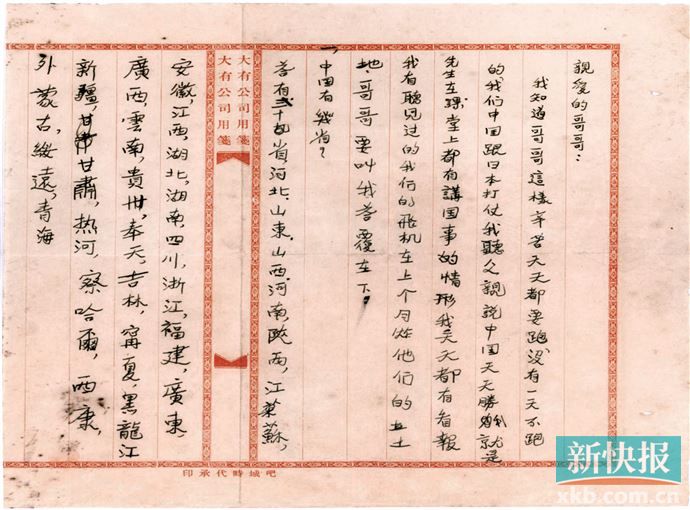 親愛的哥哥：
我知道哥哥這樣辛苦天天都要跑沒有一天不跑
的我们中國跟日本打仗我聽父親說中国天天勝利就是
先生在課堂上都有講国事的情形我天天都有看報
我有聽見过的我们的飛机在上个月炸他们的土
地，哥哥要叫我荅覆在下。
一、中国有幾省？
荅有二十八省河北，山東，山西，河南，陝西，江蘇，
大有公司用箋
大有公司用箋
安徽，江西，湖北，湖南，四川，浙江，福建，廣東
廣西，雲南，貴州，奉天，吉林，甯夏，黑龍江
新疆，甘肅，热河，察哈爾，西康，
外蒙古，綏遠，青海
吧城時代承印
新快报
xkb.com.cn